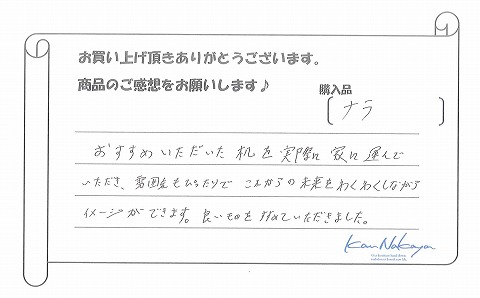 お買い上げ頂きありがとうございます。
商品のご感想をお願いします♪
購入品
ナラ
おすすめいただいた机を実際に家に運んで
いただき、雰囲気もぴったりで これからの未来をわくわくしながら
イメージができます。良いものを すすめていただきました。